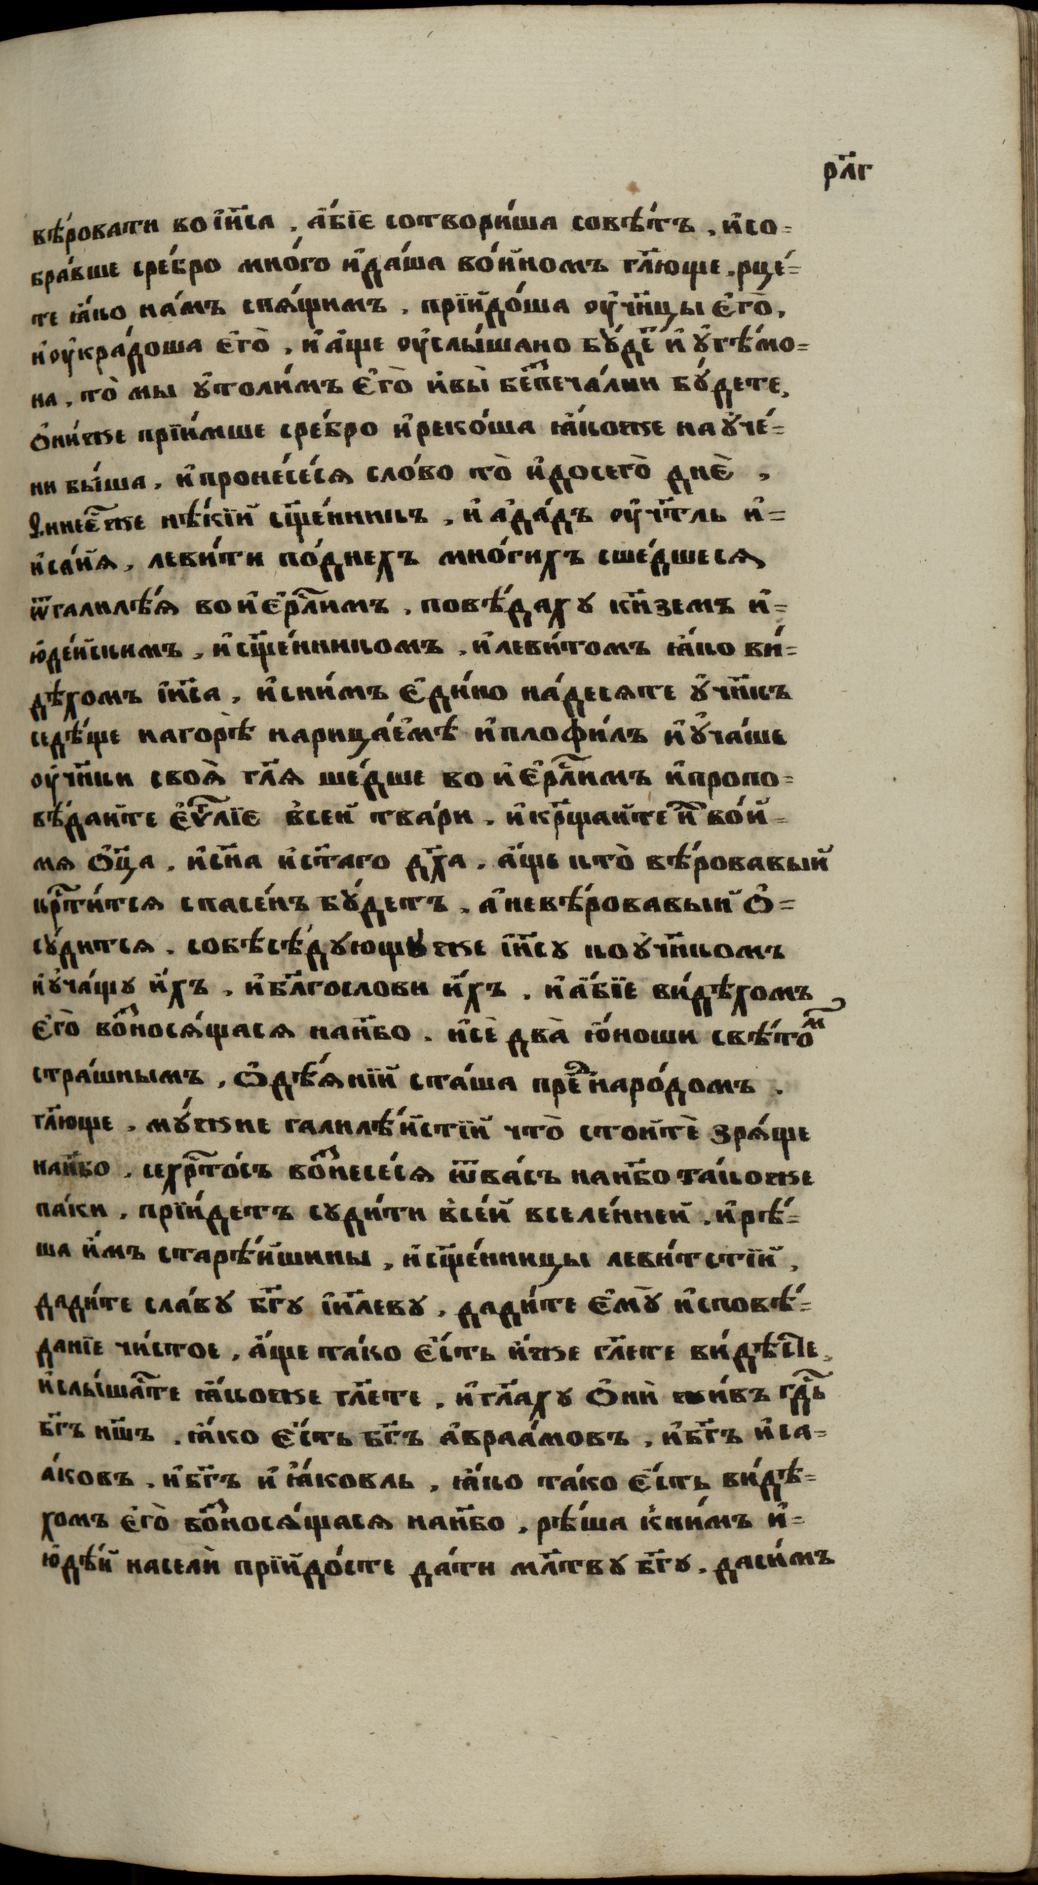 рл҃г
вѣ́ровати во і҆и҃са , а҆́бїе сотвори́ша совѣ́тъ , и҆ со=
бра́вше сребро мно́го и҆ да́ша во́йномъ гл҃юще , рцѣ́=
те ꙗ҆́ко на́мъ спѧ́щимъ , прїидо́ша оу҆чн҃цы є҆го̀ ,
и҆ оу҆кра́доша є҆го̀ , и҆ а҆́ще оу҆слы́шано бꙋ́детъ и҆ ꙋ҆ гѣ́мо=
на , то̀ мы ꙋ҆толи́мъ є҆го̀ и҆ вы̀ беспеча́лни бꙋ́дете ,
ѻ҆ни́же прїи́мше сребро́ и҆ реко́ша ꙗ҆́коже наꙋче́=
ни бы́ша , и҆ пронесе́сѧ сло́во то̀ и҆ до сего̀ днѐ ,
Финее́сже нѣ́кїй сщ҃е́нникъ , и҆ а҆да́дъ оу҆чт҃ль и҆=
и҆са́їѧ , леви́ти по́днехъ мно́гихъ сше́дшесѧ
ѿ галилѣ́ѧ во и҆єрл҃имъ , повѣ́дахꙋ кн҃земъ и҆=
ю҆де́йскимъ , и҆ сщ҃е́нникомъ , и҆ леви́томъ ꙗ҆́ко ви́=
дѣхомъ і҆и҃са , и҆ сни́мъ є҆ди́но на́десѧте ꙋ҆чн҃къ
седѣ́ще на горѣ̀ нарица́емѣ и҆плофи́лъ и҆ ꙋ҆ча́ше
оу҆чн҃ки своѧ̀ гл҃ѧ ше́дше во и҆єрл҃имъ и҆ пропо=
вѣ́дайте є҆ѵⷢ҇лїе все́й тва́ри , и҆ кр҃щайте и҆̀ⷯ во и҆́=
мѧ ѻ҆ц҃а , и҆ сн҃а и҆ ст҃аго дх҃а , а҆́ще кто̀ вѣ́ровавый
крⷭ҇ти́тсѧ спасе́нъ бꙋ́детъ , а҆ невѣ́ровавый ѻ҆=
сꙋ́дитсѧ , собѣсѣ́дꙋющꙋже і҆и҃сꙋ ко ꙋ҆чн҃комъ
и҆ ꙋ҆ча́щꙋ и҆́хъ , и҆ бл҃гослови и҆́хъ , и҆ а҆́бїе ви́дѣхомъ
є҆го̀ возносѧ́щасѧ на нб҃о , и҆ сѐ два̀ ю҆́ноши свѣ́томъ
стра́шнымъ , ѻ҆дѣ́ѧнїй ста́ша пред̾ наро́домъ ,
гл҃юще , мꙋ́жие галилѣ́йстїй что̀ стоитѐ зрѧ́ще
на нб҃о , се хрⷭ҇то́съ вознесе́сѧ ѿ ва́съ на нб҃о та́коже
па́ки , прїи́детъ сꙋди́ти все́й вселе́нней , и҆ рѣ́=
ша и҆́мъ старѣ́йшины , и҆ сщ҃е́нницы леви́тстїй ,
дади́те сла́вꙋ бг҃ꙋ і҆и҃левꙋ , дади́те є҆мꙋ̀ и҆сповѣ́=
данїе чи́стое , а҆́ще та́ко є҆́сть и҆́же гл҃ете ви́дѣсте ,
и҆ слы́шаⷭ҇те ꙗ҆́коже гл҃ете , и҆ гл҃ахꙋ ѻ҆нѝ живъ гдⷭ҇ь
бг҃ъ нш҃ъ , ꙗ҆́ко є҆́сть бг҃ъ а҆враа́мовъ , и҆ бг҃ъ и҆са=
а́ковъ , и҆ бг҃ъ и҆ ꙗ҆́ковль , ꙗ҆́ко та́ко є҆́сть ви́дѣ=
хомъ є҆го̀ возносѧ́щасѧ на нб҃о , рѣ́ша к̾ни́мъ и҆=
ю҆дѣ́й на селѝ прїидо́сте да́ти мл҃твꙋ бг҃ꙋ , дасимъ